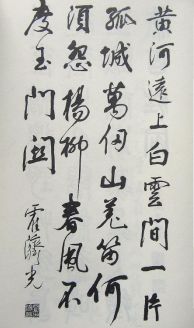 黄河遠上白雲間一片
孤城萬仞山羌笛何
須怨楊柳春風不
度玉門關
霍蔣光